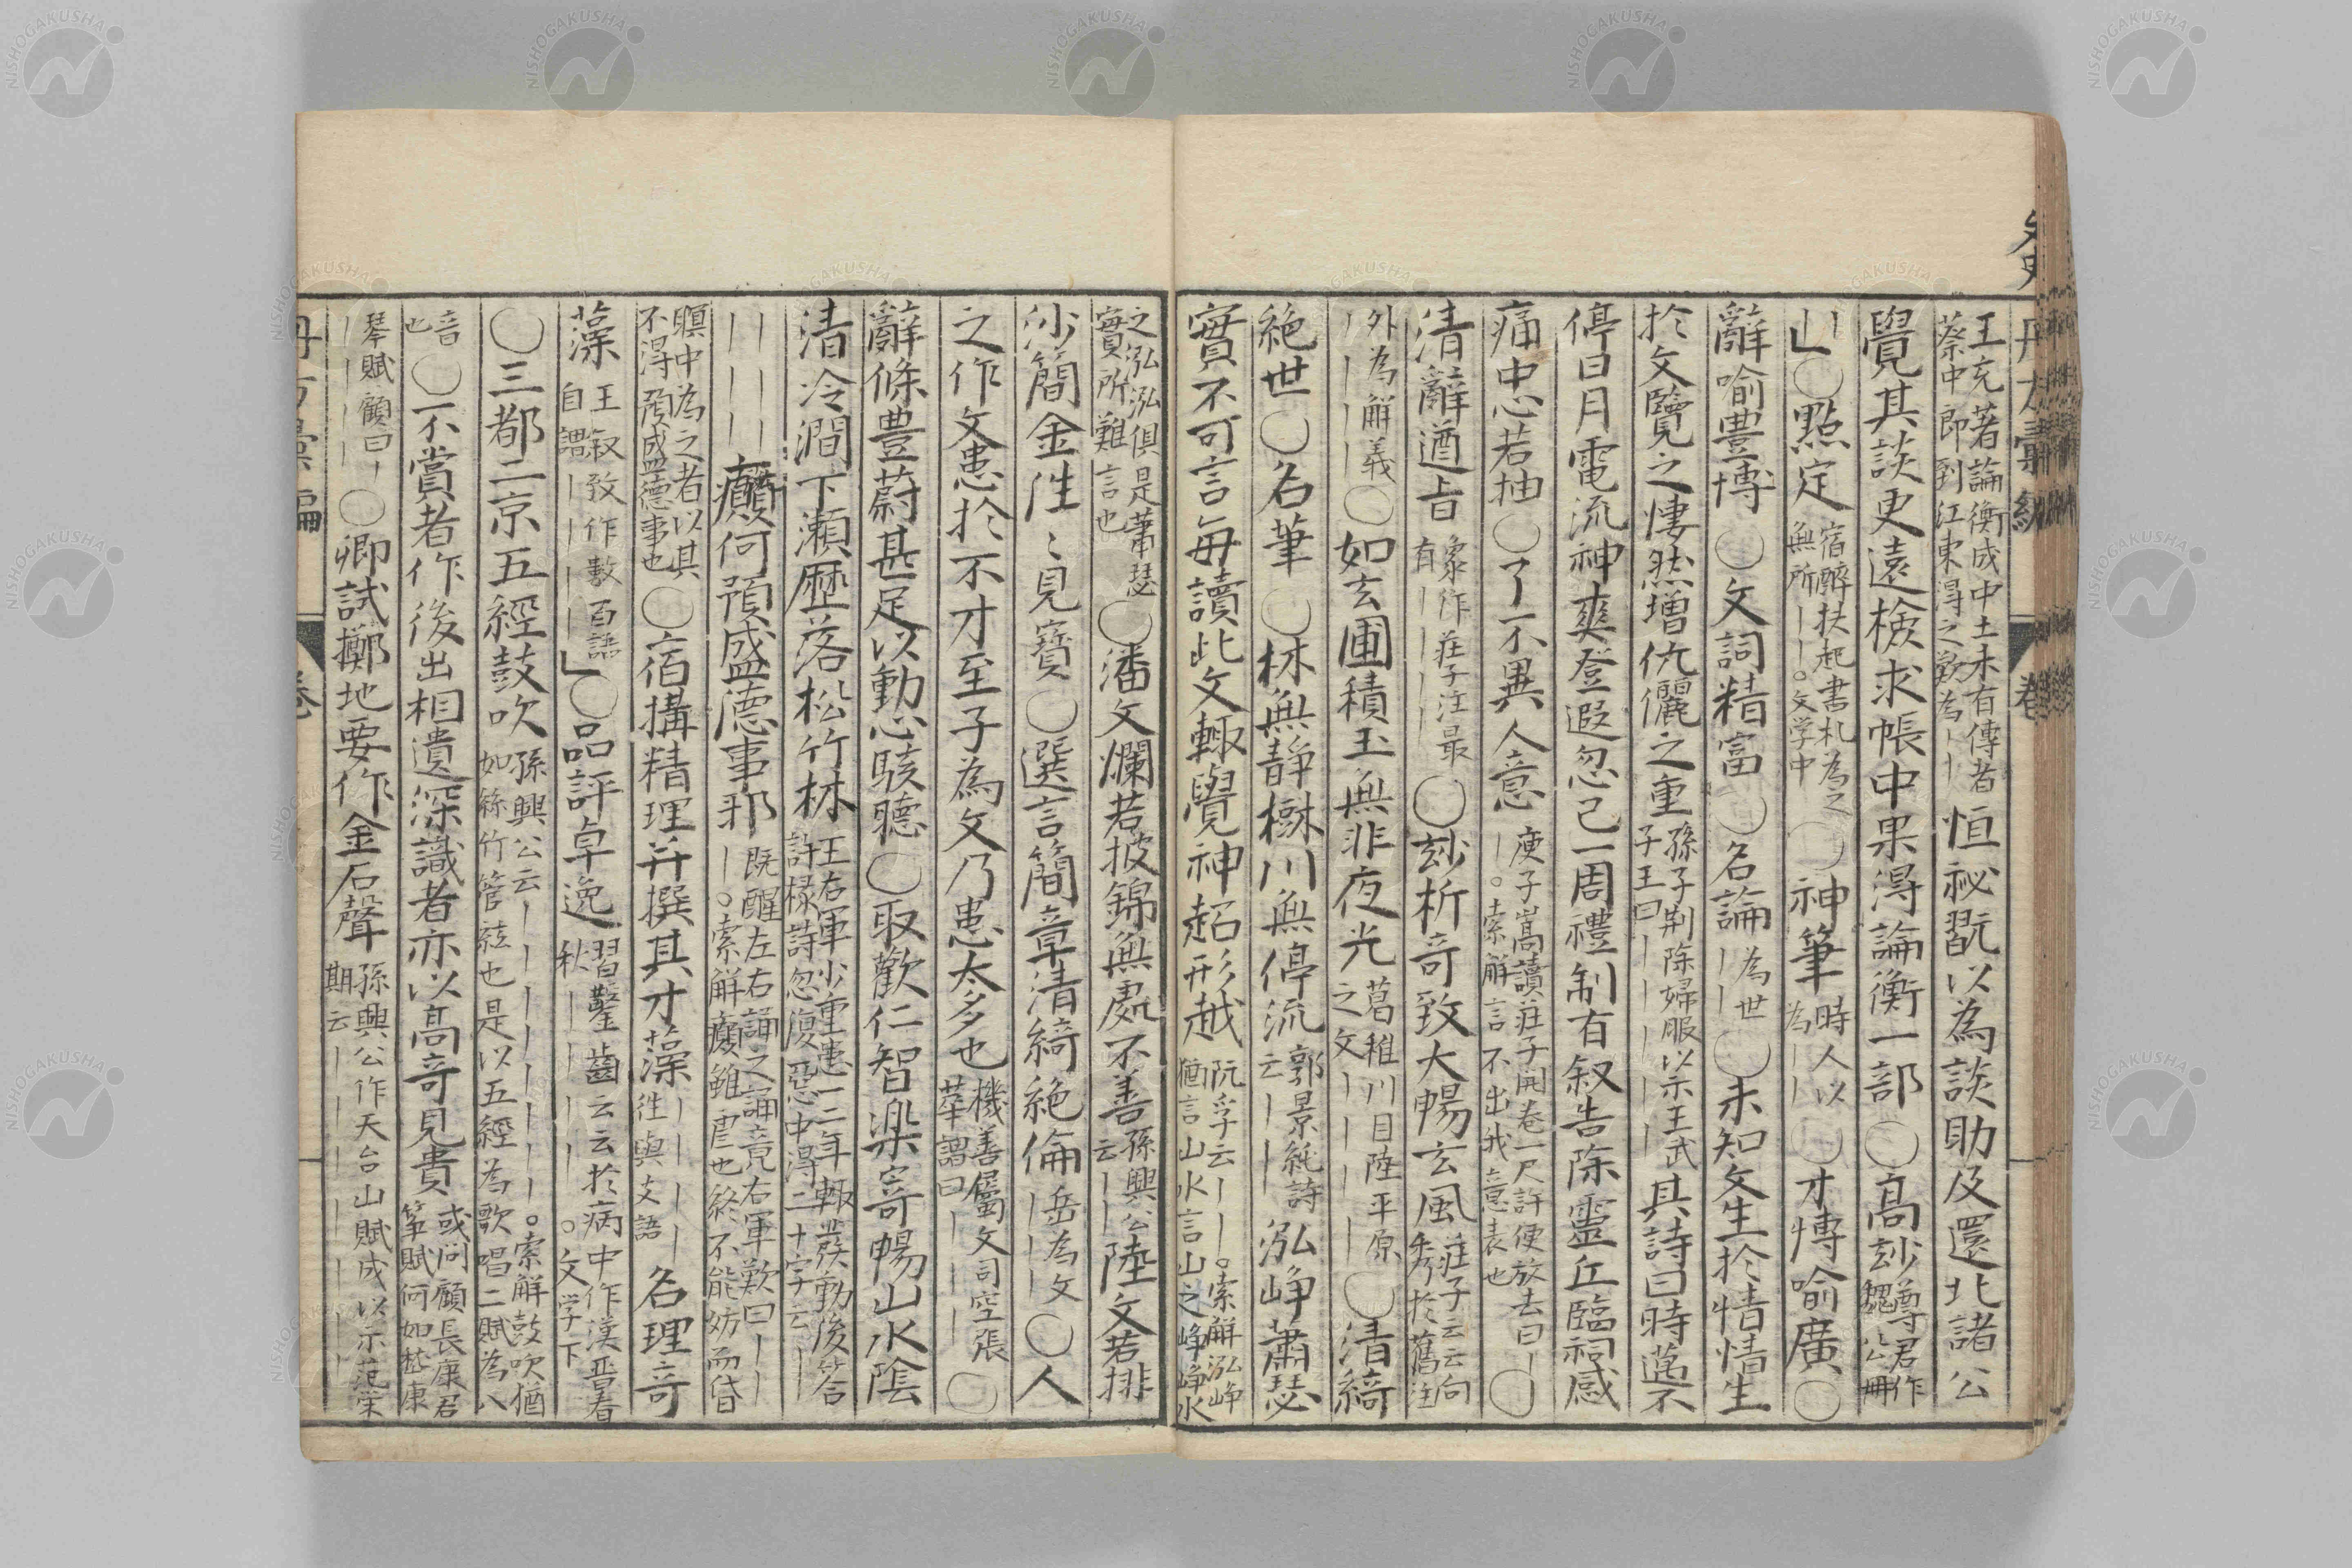 王充著論衡成中土未有傳者
蔡中郎到江東得之歎為｜｜
恒祕翫以為談助及還北諸公
覺其談更遠檢求帳中果得論衡一部○高玅
尊君作
魏公冊
｜｜
○點定
宿醉扶起書札為之
無所｜｜。文学中
○神筆
時人以
為｜｜
○才博喻廣○
辭喻豊博○文詞精富○名論
為世
｜｜
○未知文生於情情生
於文覽之悽然增伉儷之重
孫子荆除婦服以示王武
子王曰｜｜｜｜｜｜
其詩曰時邁不
停日月電流神爽登遐忽已一周禮制有叙告除靈丘臨祠感
痛中心若抽○了不異人意
庾子嵩讀莊子開卷一尺許便放去曰｜
｜。索解言不出我意表也
○
清辭遒旨
象作莊子注最
有｜｜｜｜
○玅析奇致大暢玄風
莊子云云向
秀於舊注
外為解義
｜｜｜｜
○如玄圃積玉無非夜光
葛稚川目陸平原
之文｜｜｜｜
○清綺
絶世○名筆○林無靜樹川無停流
郭景純詩
云｜｜
泓崢蕭瑟
實不可言每讀此文輙覺神超形越
阮孚云｜｜。索解泓崢
猶言山水言山之崢崢水
之泓泓俱是蕭瑟
實所難言也
○潘文爛若披錦無處不善
孫興公
云｜｜
陸文若排
沙簡金往〻見寳○選言簡章清綺絶倫
岳為文
｜｜｜
○人
之作文患於不才至子為文乃患太多也
機善屬文司空張
華謂曰｜｜｜
○
辭條豊蔚甚足以動心駭聴○取歡仁智樂寄暢山水陰
清冷澗下瀬歴落松竹林
王右軍少重患一二年輙發動後答
許掾詩忽復惡中得二十字云｜
｜｜｜｜
癲何預盛德事邪
既醒左右誦之誦竟右軍歎曰｜｜
｜。索解癲雖虐也終不能妨而昏
瞑中為之者以其
不得預盛德事也
○宿搆精理并撰其才藻
｜｜｜｜
往與支語
名理奇
藻
王叙致作數百語
自謂｜｜｜｜
○品評卓逸
習鑿齒云云於病中作漢晋春
秋｜｜｜｜。文学下
○三都二京五經鼓吹
孫興公云｜｜｜｜｜｜。索解鼓吹猶
如絲竹管絃也是以五經為歌唱二賦為八
音
也
○不賞者作後出相遺深識者亦以高奇見貴
或问顧長康君
筝賦何如嵇康
琴賦顧曰｜
｜｜｜｜
○卿試擲地要作金石聲
孫興公作天台山賦成以示范栄
期云｜｜｜｜｜｜